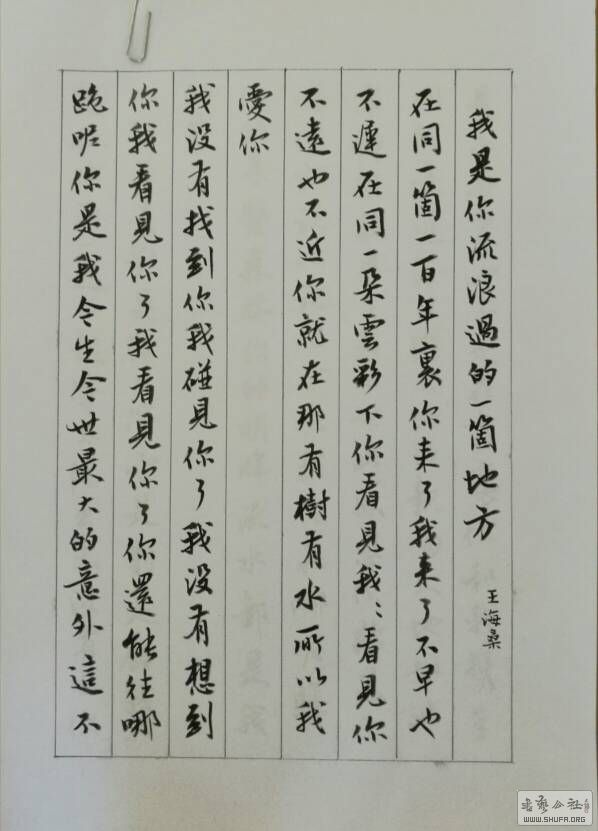 我是你流浪過的一箇地方
王海桑
在同一箇一百年裏你来了我来了不早也
不遲在同一朵雲彩下你看見我：看見你
不遠也不近你就在那有樹有水所以我
愛你
我没有找到你我碰見你了我没有想到
你我看見你了我看見你了你還能往哪
跪呢你是我今生今世最大的意外這不
書藝公社
WWW.SHUFA.ORG